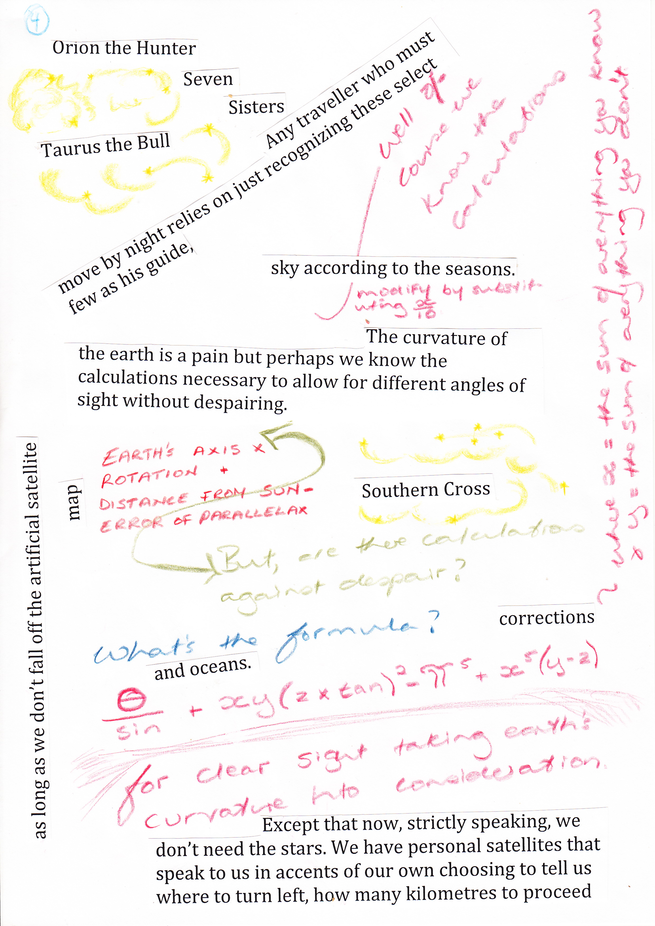 4
Orion the Hunter
Seven
Sisters
Taurus the Bull
Any traveller who must
move by night relies on just recognizing these select
few as his guide,
well of
course we
know the
calculations
sky according to the seasons.
modify by substit-
uting x/10
The curvature of
the earth is a pain but perhaps we know the
calculations necessary to allow for different angles of
sight without despairing.
~ where x = the sum of everything you know
x y = the sum of everything you don't
as long as we don't fall off the artificial satellite
map
EARTH'S AXIS x
ROTATION +
DISTANCE FROM SUN -
ERROR OF PARALLELAX
Southern Cross
But, are there calculations
against despair?
What's the formula?
corrections
and oceans.
Θ/sin + xy(z x tan)² - π⁵ + x⁵(y-z)
for clear sight taking earth's
curvature into consideration.
Except that now, strictly speaking, we
don't need the stars. We have personal satellites that
speak to us in accents of our own choosing to tell us
where to turn left, how many kilometres to proceed